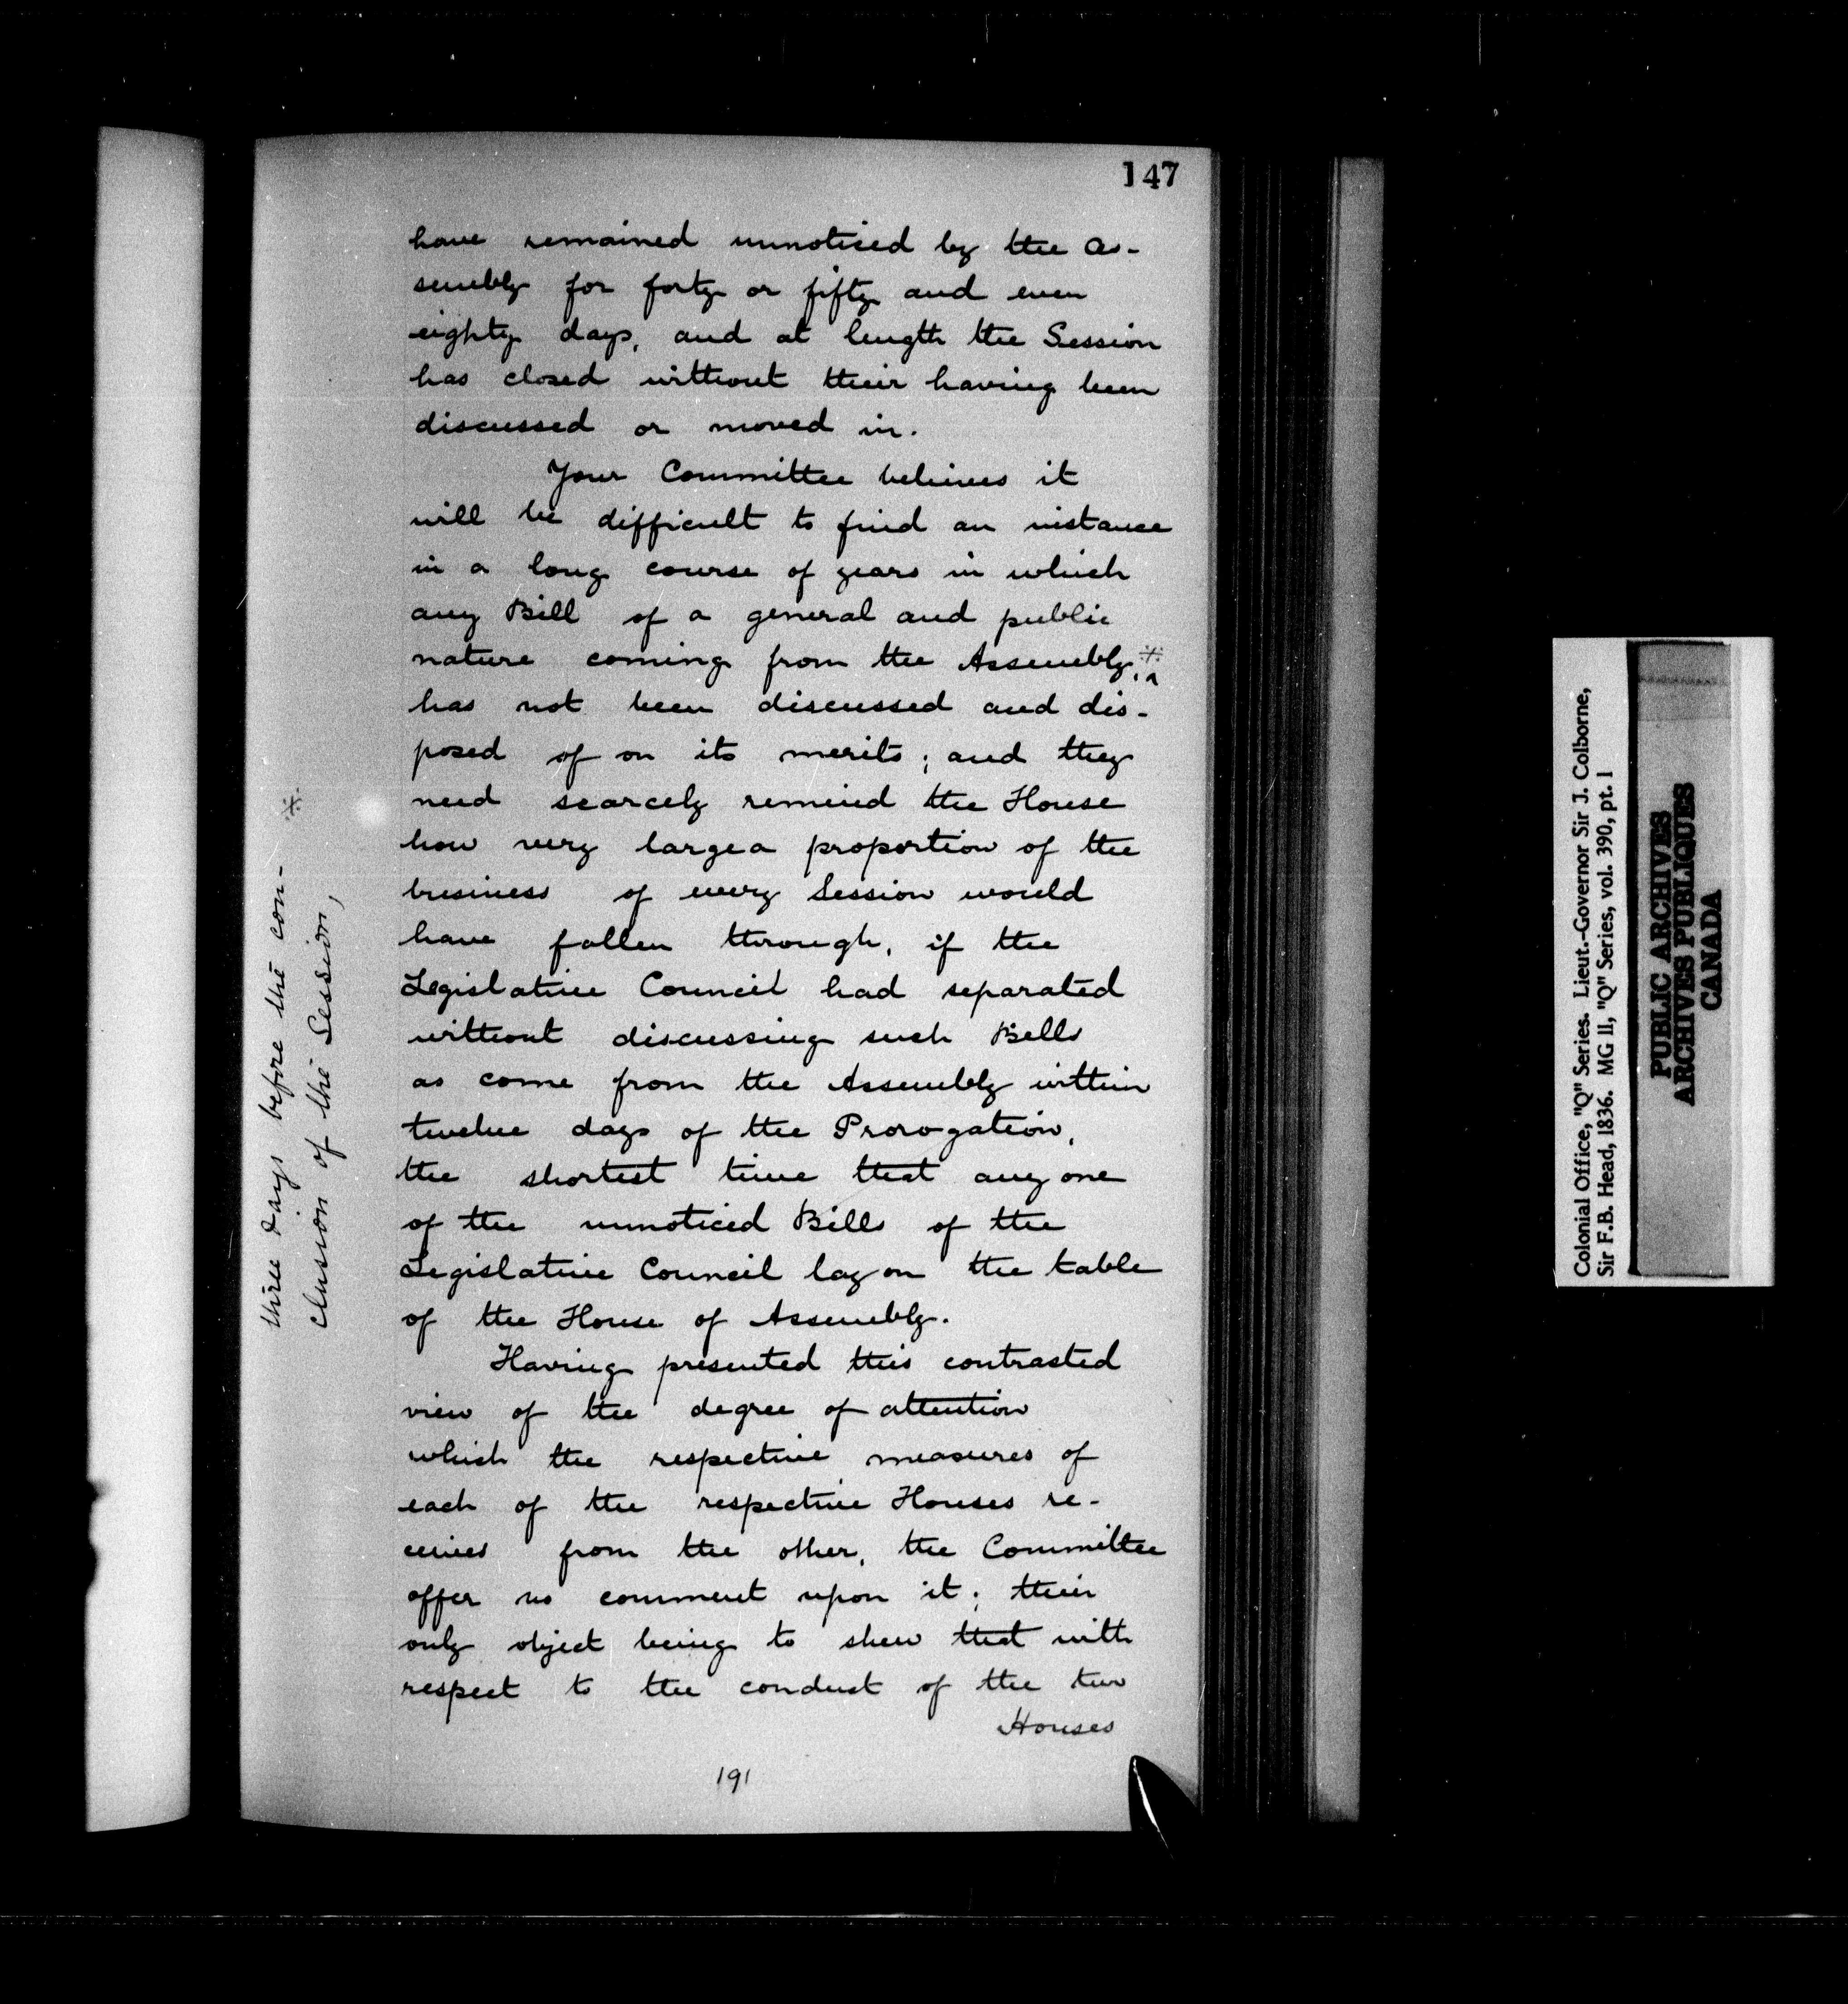 147
have remained unnoticed by the as-
sembly for forty or fifty and even
eighty days, and at length the Session
has closed without their having been
discussed or moved in.
Your Committee believes it
will be difficult to find an instance
in a long course of years in which
any Bill of a general and public
nature coming from the Assembly, ※
has not been discussed and dis-
posed of on its merits; and they
need scarcely remind the House
how very large a proportion of the
business of every Session would
have fallen through, if the
Legislative Council had separated
without discussing such Bills
as come from the Assembly within
twelve days of the Prorogation,
the shortest time that any one
of the unnoticed Bills of the
Legislative Council lay on the table
of the House of Assembly.
Having presented this contrasted
view of the degree of attention
which the respective measures of
each of the respective Houses re-
ceives from the other, the Committee
offer no comment upon it; their
only object being to shew that with
respect to the conduct of the two
Houses
191
three days before the con- ※
clusion of the Session,
Colonial Office, "Q" Series. Lieut.-Governor Sir J. Colborne,
Sir F.B. Head, 1836. MG 11, "Q" Series, vol. 390, pt. 1
PUBLIC ARCHIVES
ARCHIVES PUBLIQUES
CANADA